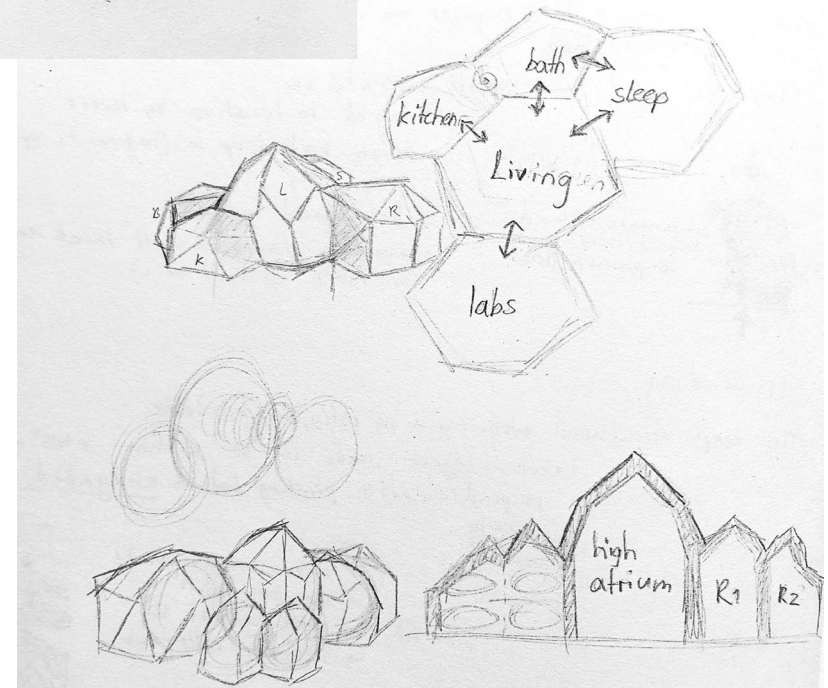 bath
sleep
kitchen
Living
labs
L
S
R
K
high
atrium
R1
R2